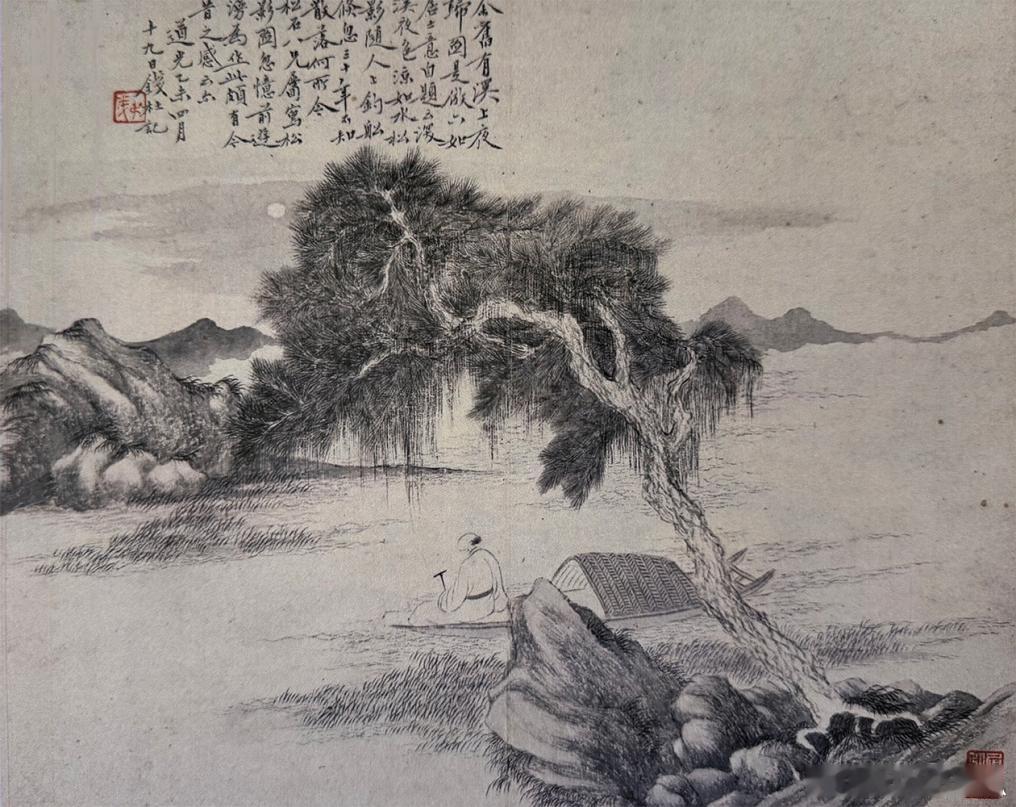 余舊有溪上夜
歸圖是倣六如
居士意自題云深
溪夜色涼如水松
影隨人上釣船
倏忽三十年不知
散落何所今
松石八兄屬寫松
影圖忽憶前遊
為作此頗有今
昔之感云尒
道光乙未四月
十九日錢杜記